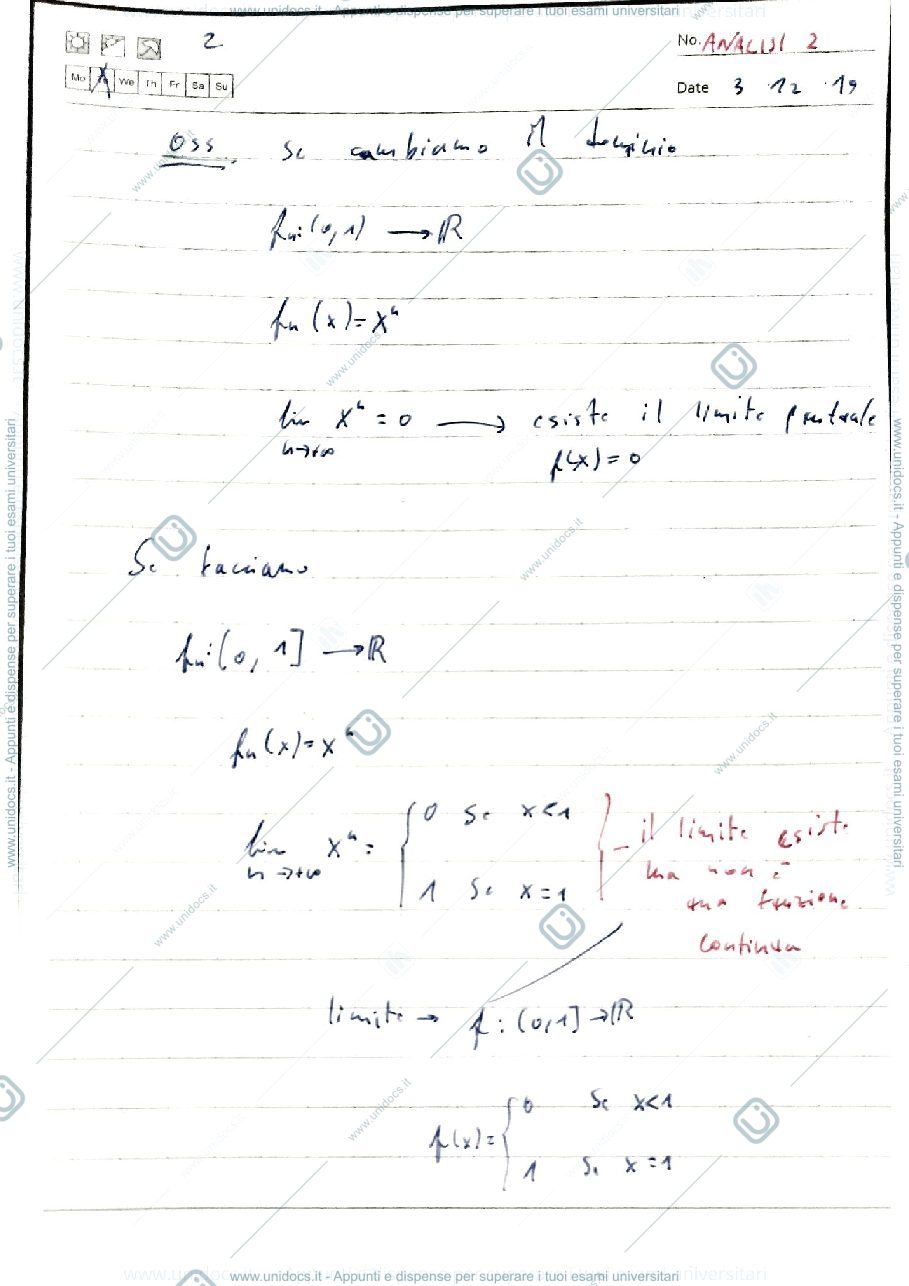 www.unidocs.it - Appunti e dispense per superare i tuoi esami universitari
2
No. ANALISI 2
Mo We Th Fr Sa Su
Date 3 12 19
Oss. Se cambiamo il dominio
fn: (0, 1) → ℝ
fn (x) = xⁿ
lim xⁿ = 0 → esiste il limite puntuale
n→+∞ f(x) = 0
Se facciamo
fn: (0, 1] → ℝ
fn (x) = xⁿ
lim xⁿ = { 0 se x<1
n→+∞ 1 se x=1 } – il limite esiste
ma non è
una funzione
continua
limite → f : (0,1] → ℝ
f(x) = { 0 se x<1
1 se x=1
www.unidocs.it - Appunti e dispense per superare i tuoi esami universitari
www.unidocs.it - Appunti e dispense per superare i tuoi esami universitari
www.unidocs.it - Appunti e dispense per superare i tuoi esami universitari